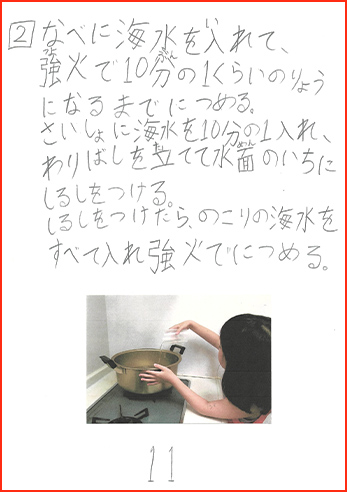 2 なべに海水を入れて、
強火で10分の1くらいのりょう
になるまでにつめる。
さいしょに海水を10分の1入れ、
わりばしを立てて水面のいちに
しるしをつける。
しるしをつけたら、のこりの海水を
すべて入れ強火でにつめる。
11